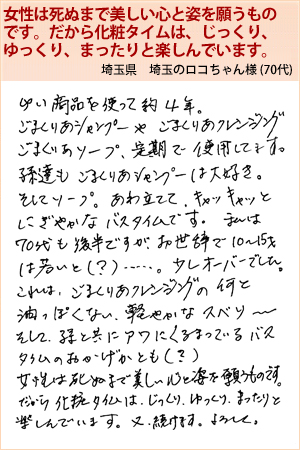 女性は死ぬまで美しい心と姿を願うもの
です。だから化粧タイムは、じっくり、
ゆっくり、まったりと楽しんでいます。
埼玉県　埼玉のロコちゃん様(70代)
ゆい商品を使って約4年。
ごまくりあシャンプーや ごまくりあクレンジング
ごまくりあソープ、定期で使用してます。
孫達も ごまくりあシャンプーは大好き。
そしてソープ。あわ立てて、キャッキャッと
にぎやかな バスタイムです。 私は
70代も後半ですが お世辞で10〜15才
は若いと(？)……。少しオーバーでした。
これは、ごまくりあクレンジングの 何と
油っぽくない、軽やかな スベリ〜
そして、孫と共に アワにくるまっている バス
タイムのおかげかとも(？)
女性は死ぬまで美しい心と姿を願うものです。
だから 化粧タイムは、じっくり、ゆっくり、まったりと
楽しんでいます。又、続けます。よろしく。